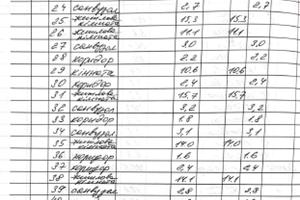 24 санвузол 2,7 2,7
25 житлова кімната 15,3 15,3
26 житлова кімната 11,1 11,1
27 санвузол 3,0 3,0
28 коридор 2,2 2,2
29 кімната 10,6 10,6
30 коридор 2,4 2,4
31 житлова кімната 15,7 15,7
32 санвузол 3,2 3,2
33 коридор 1.8 1.8
34 санвузол 3,1 3,1
35 житлова кімната 14.0 14.0
36 коридор 1.6 1.6
37 коридор 2,4 2,4
38 житлова кімната 14.1 14.1
39 санвузол 2,8 2,8